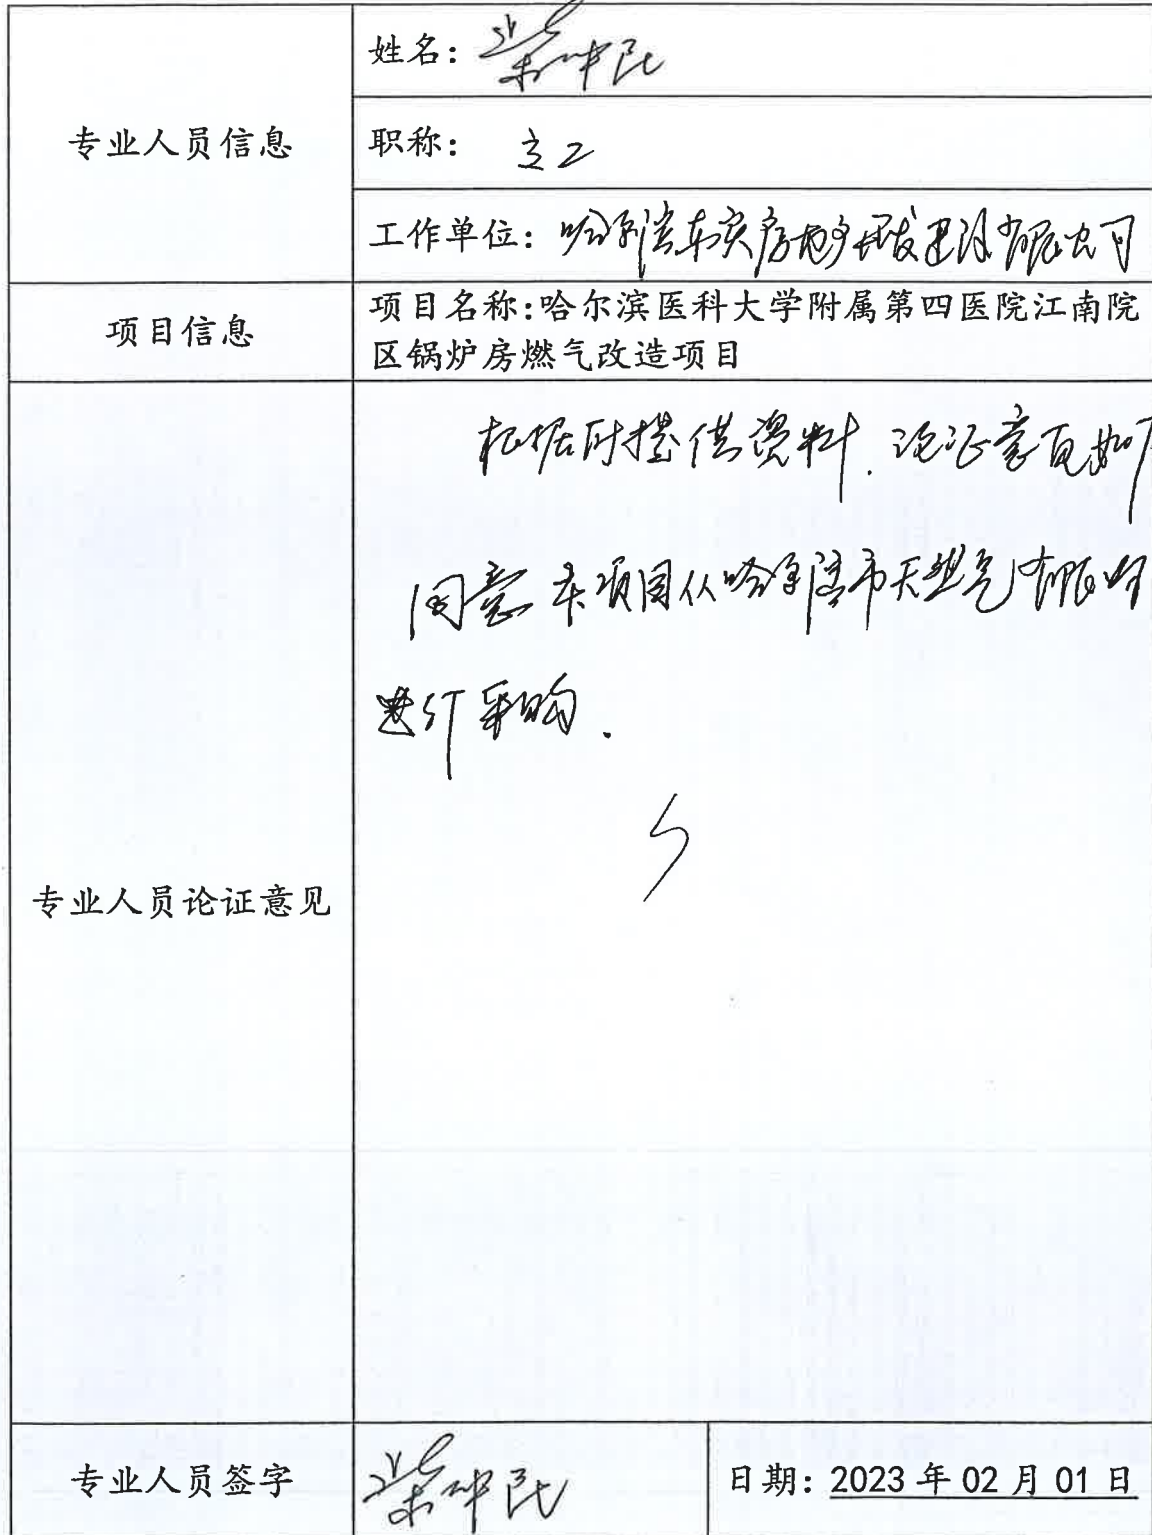 专业人员信息
姓名：柴冲民
职称：高工
工作单位：哈尔滨东实房地产开发建设有限公司
项目信息
项目名称：哈尔滨医科大学附属第四医院江南院
区锅炉房燃气改造项目
专业人员论证意见
根据所提供资料，论证意见如下
同意本项目从哈尔滨市天然气有限公司
进行采购．
专业人员签字
柴冲民
日期：2023年02月01日